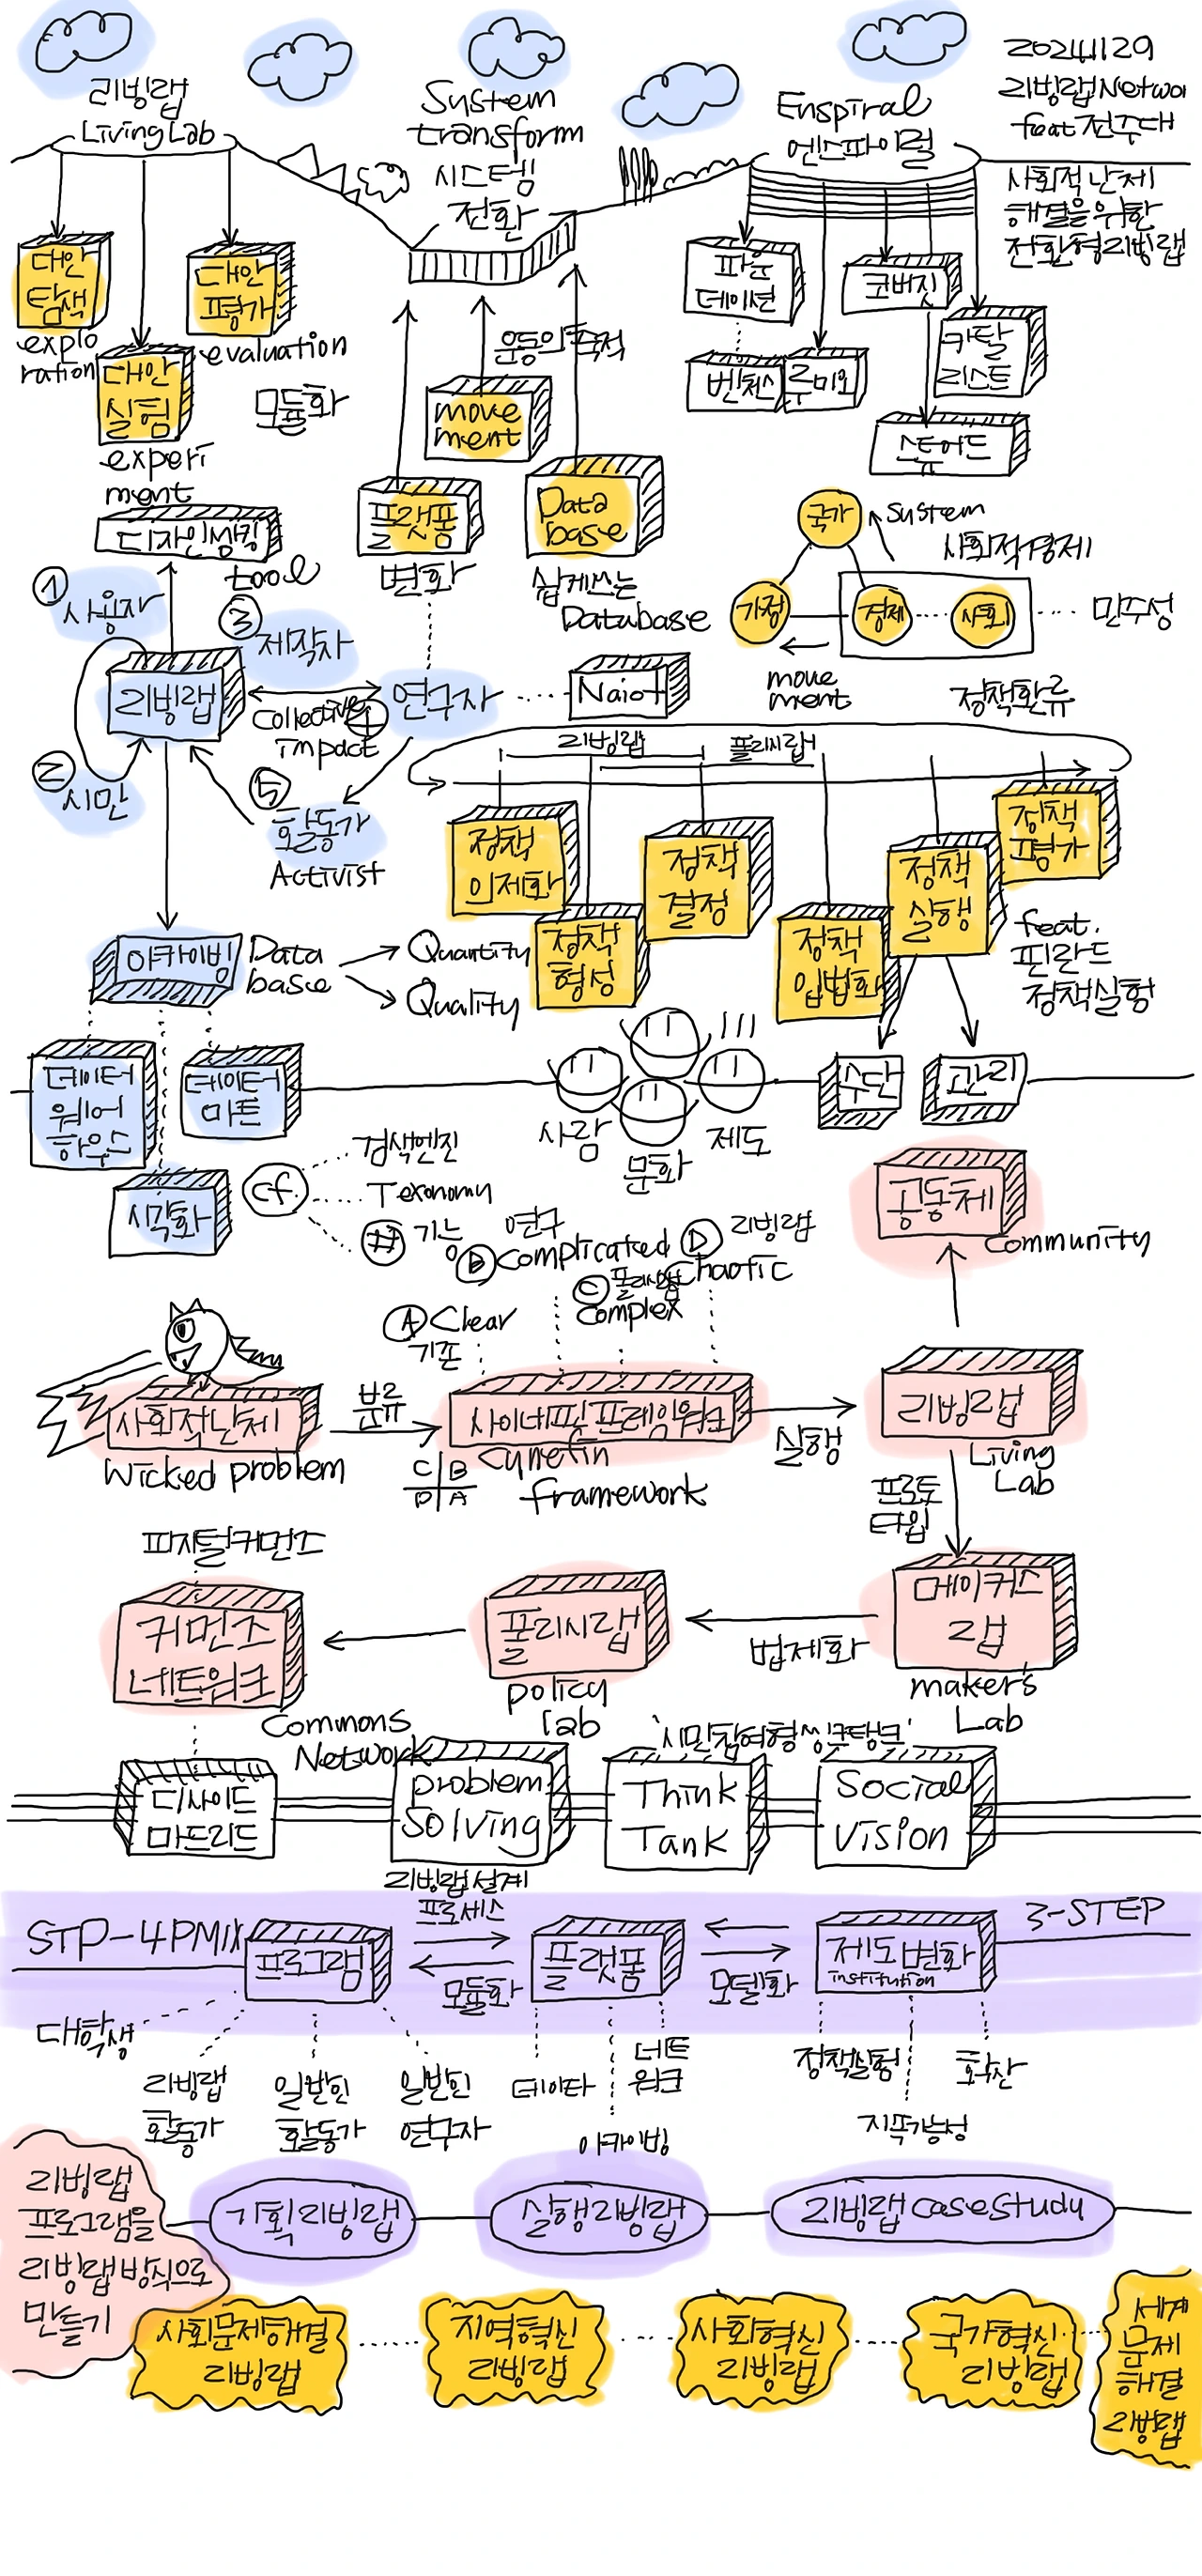 20241129
리빙랩Netwo
feat 전주대
사회적난제
해결을위한
전환형리빙랩
리빙랩
Living Lab
대안
탐색
explo
ration
대안
실험
experi
ment
대안
평가
evaluation
모듈화
System
transform
시스템
전환
운동의 목적
move
ment
플랫폼
변화
Data
base
쉽게쓰는
Database
Enspiral
엔스파이럴
파운
데이션
벤처스
루미오
코버짓
카탈
리스트
스튜어드
디자인씽킹
tool
① 사용자
② 시민
③ 제작자
리빙랩
Collective
impact
④
연구자
Naiot
⑤
활동가
Activist
국가
System
사회적경제
가정
경제
사회
민주성
move
ment
정책환류
리빙랩
폴리시랩
정책
의제화
정책
형성
정책
결정
정책
입법화
정책
실행
정책
평가
feat.
핀란드
정책실험
수단
관리
아카이빙
Data
base
Quantity
Quality
데이터
웨어
하우스
데이터
마트
시각화
cf.
검색엔진
Texonomy
# 기능
사람
문화
제도
공동체
Community
Ⓐ Clear
기존
연구
Ⓑ Complicated
Ⓒ 폴리시랩
Complex
Ⓓ 리빙랩
Chaotic
사회적난제
Wicked problem
분류
사이네핀프레임워크
Cynefin
framework
C B
D A
실행
리빙랩
Living
Lab
프로토
타입
메이커스
랩
makers
Lab
법제화
폴리시랩
policy
lab
피지털커먼즈
커먼즈
네트워크
Commons
Network
디사이드
마드리드
problem
Solving
'시민참여형씽크탱크'
Think
Tank
Social
Vision
리빙랩설계
프로세스
STP-4PMIX
프로그램
모듈화
플랫폼
모델화
제도변화
institution
3-STEP
대학생
리빙랩
활동가
일반인
활동가
일반인
연구자
데이타
아카이빙
네트
워크
정책실험
지속가능성
확산
리빙랩
프로그램을
리빙랩방식으로
만들기
기획리빙랩
실행리빙랩
리빙랩 casestudy
사회문제해결
리빙랩
지역혁신
리빙랩
사회혁신
리빙랩
국가혁신
리빙랩
세계
문제
해결
리빙랩